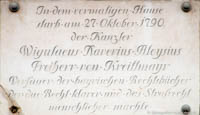 In dem vormaligen Hause
starb am 27. Oktober 1790.
der Kanzler
Wigulaeus Xaverius Aloysius
Freiherr von Kreittmayr
Verfasser der bayerischen Rechtsbücher
der das Recht klarer und das Strafrecht
menschlicher machte